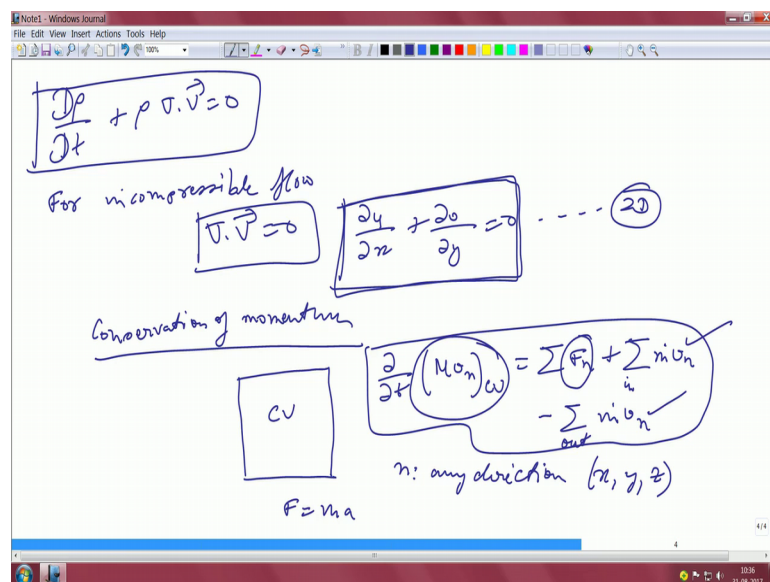 Note1 - Windows Journal
File Edit View Insert Actions Tools Help
100%
Dρ/Dt + ρ ∇.V⃗ = 0
For incompressible flow
∇.V⃗ = 0 ∂u/∂x + ∂v/∂y = 0 ---- 2D
Conservation of momentum
∂/∂t (Mv_n)_cv = Σ F_n + Σ_in ṁv_n
- Σ_out ṁv_n
CV
n: any direction (x, y, z)
F = ma
4/4
4
10:36